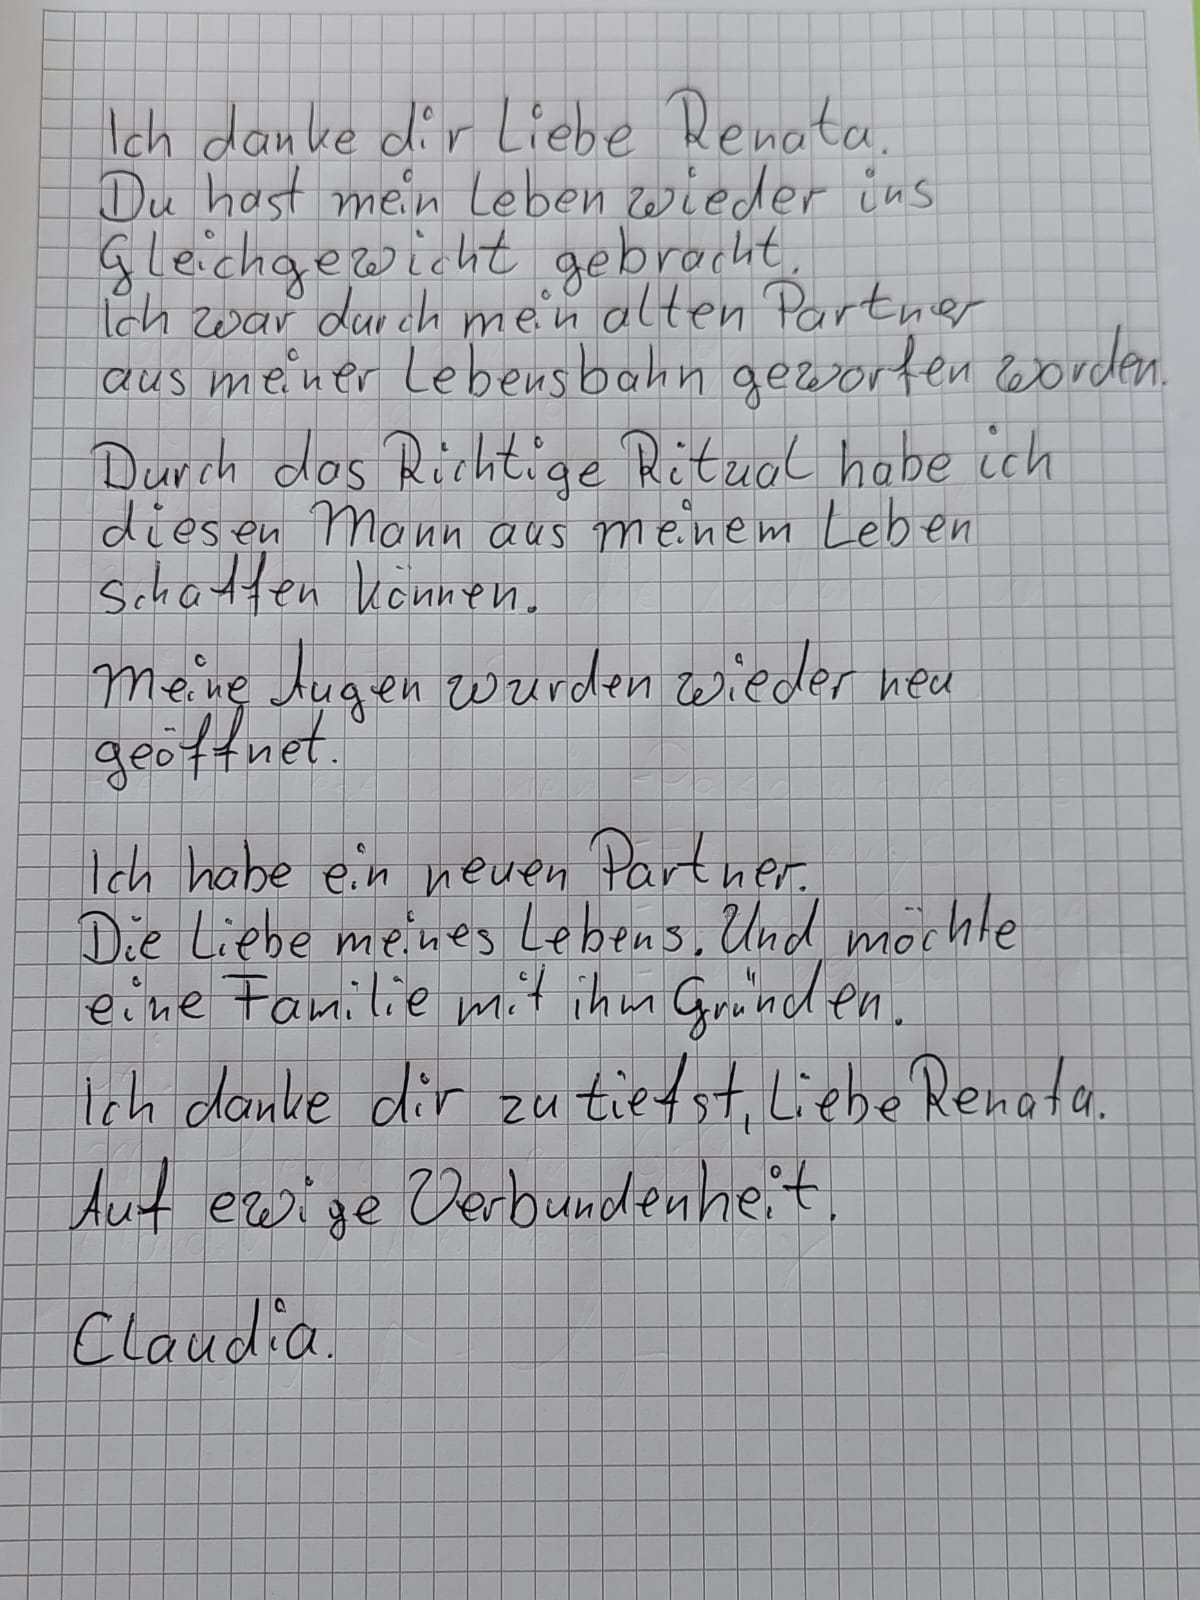 Ich danke dir Liebe Renata.
Du hast mein Leben wieder ins
Gleichgewicht gebracht.
Ich war durch mein alten Partner
aus meiner Lebensbahn geworfen worden.
Durch das Richtige Ritual habe ich
diesen Mann aus meinem Leben
schaffen können.
Meine Augen wurden wieder neu
geöffnet.
Ich habe ein neuen Partner.
Die Liebe meines Lebens. Und möchte
eine Familie mit ihm Gründen.
Ich danke dir zu tiefst, Liebe Renata.
Auf ewige Verbundenheit.
Claudia.